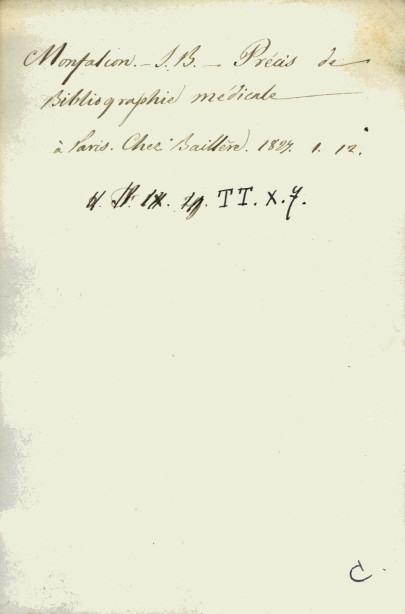 Monfalcon. - J. B. - Précis de
Bibliographie médicale
à Paris. Chez Baillère. 1827. 1. 12.
IX. TT. X. 7.
C.